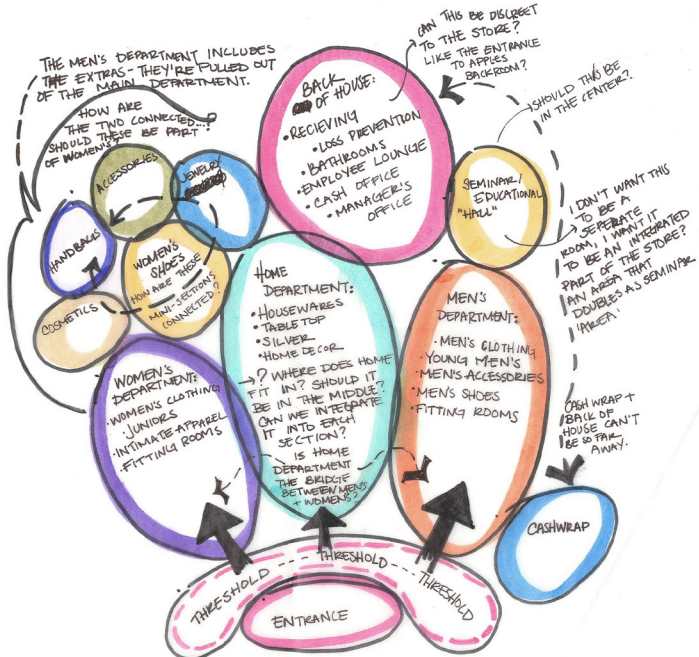 THE MEN'S DEPARTMENT INCLUDES
THE EXTRAS - THEY'RE PULLED OUT
OF THE MAIN DEPARTMENT.
HOW ARE
THE TWO CONNECTED...?
SHOULD THESE BE PART
OF WOMEN'S?
CAN THIS BE DISCREET
TO THE STORE?
LIKE THE ENTRANCE
TO APPLES
BACKROOM?
SHOULD THIS BE
IN THE CENTER?
BACK
OF HOUSE:
•RECIEVING
•LOSS PREVENTION
•BATHROOMS
•EMPLOYEE LOUNGE
•CASH OFFICE
•MANAGER'S
OFFICE
ACCESSORIES
JEWELRY
HANDBAGS
WOMEN'S
SHOES
HOW ARE THESE
MINI-SECTIONS
CONNECTED?
COSMETICS
SEMINAR/
EDUCATIONAL
"HALL"
I DON'T WANT THIS
TO BE A
SEPERATE
ROOM, I WANT IT
TO BE AN INTEGRATED
PART OF THE STORE?
AN AREA THAT
DOUBLES AS SEMINAR
'AREA'
HOME
DEPARTMENT:
•HOUSEWARES
•TABLETOP
•SILVER
•HOME DECOR
? WHERE DOES HOME
FIT IN? SHOULD IT
BE IN THE MIDDLE?
CAN WE INTEGRATE
IT INTO EACH
SECTION?
IS HOME
DEPARTMENT
THE BRIDGE
BETWEEN MENS
+ WOMENS?
MEN'S
DEPARTMENT:
•MEN'S CLOTHING
•YOUNG MEN'S
•MEN'S ACCESSORIES
•MEN'S SHOES
•FITTING ROOMS
WOMEN'S
DEPARTMENT:
•WOMEN'S CLOTHING
•JUNIORS
•INTIMATE APPAREL
•FITTING ROOMS
CASH WRAP +
BACK OF
HOUSE CAN'T
BE SO FAR
AWAY.
CASHWRAP
THRESHOLD
THRESHOLD
THRESHOLD
ENTRANCE